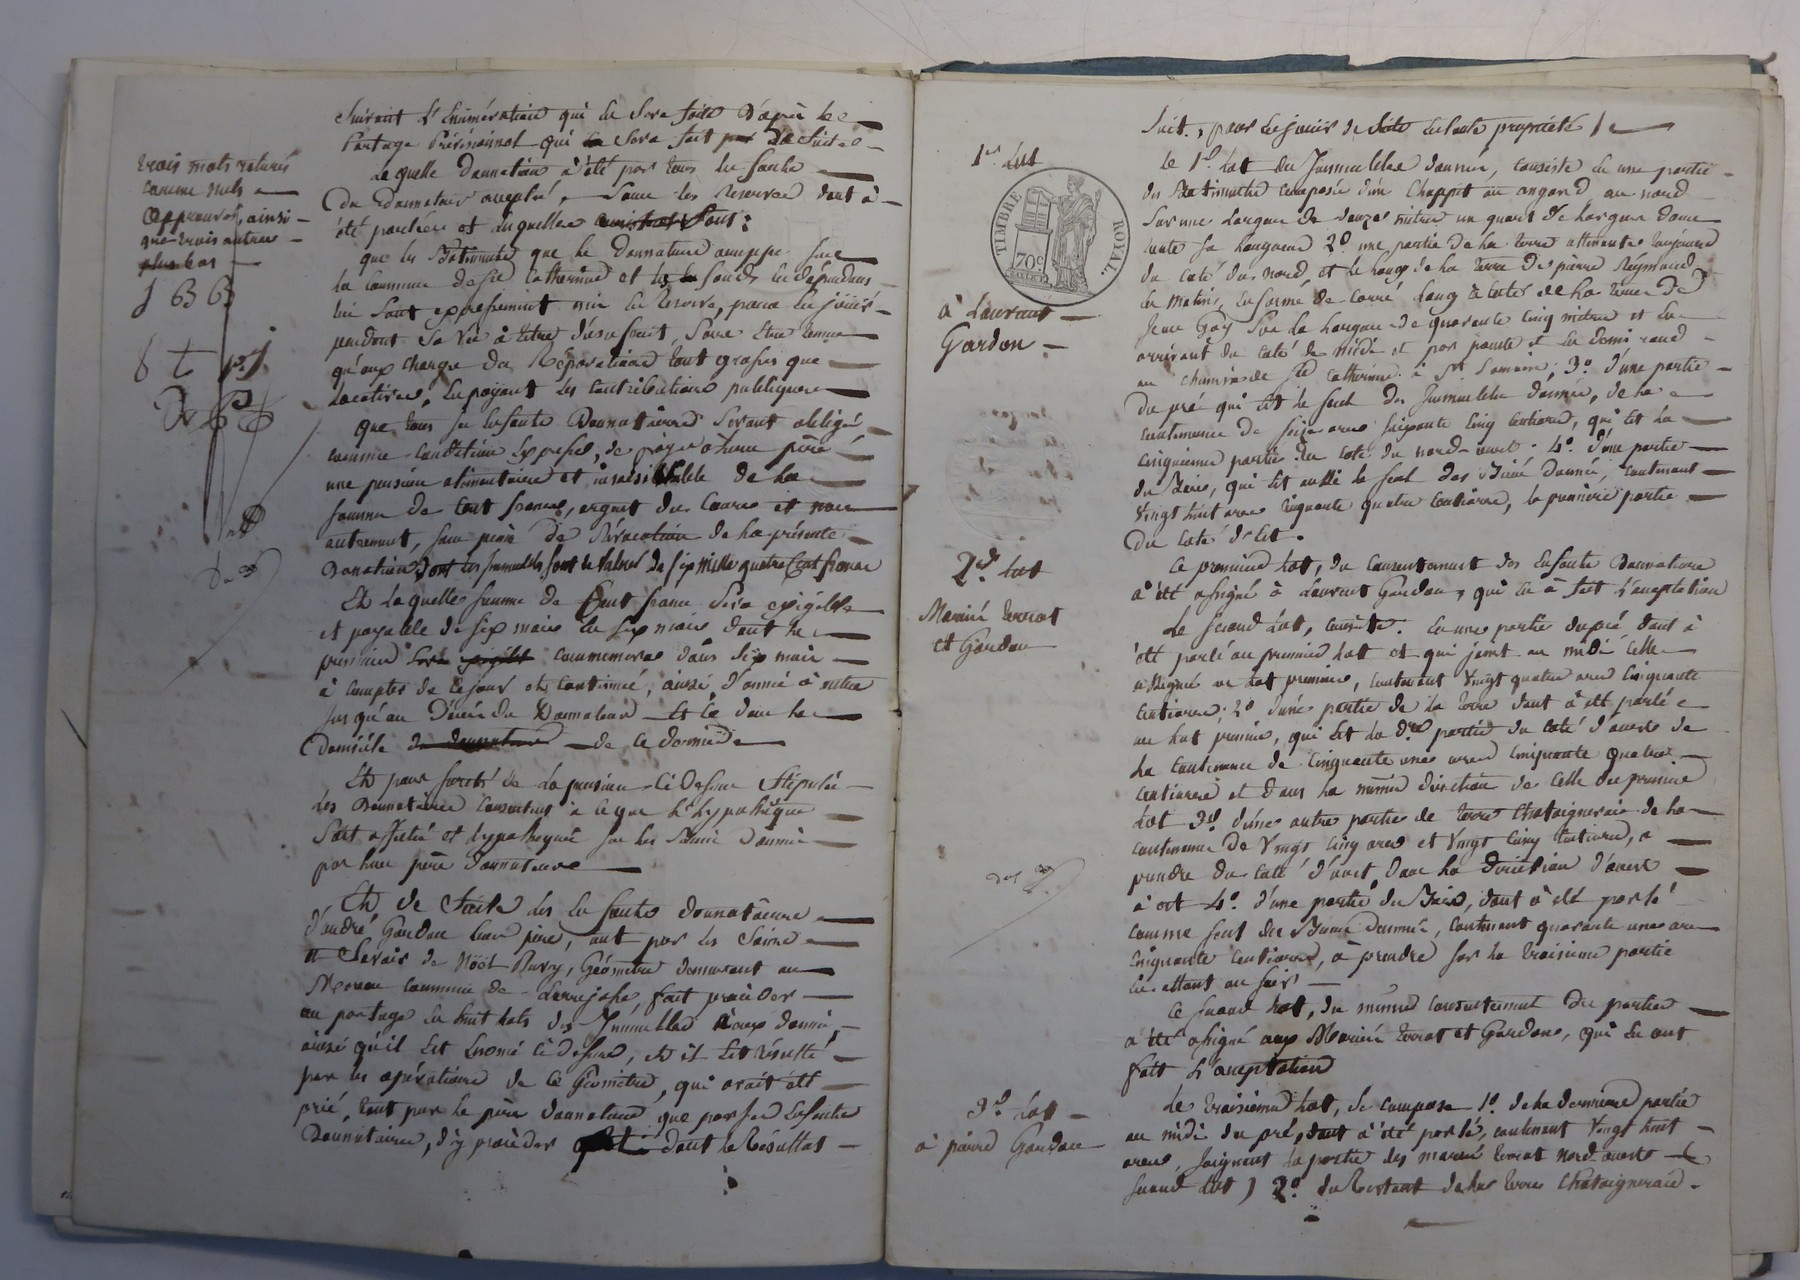 trois mots raturés
comme nuls
approuvés, ainsi
que trois autres
plus bas
Suivant l'énumération qui en sera faite d'après le
Partage qui sera fait de suite
Laquelle donnation a été par tous les enfants
du donnateur acceptée, sous les reserves dont a
été parlé et desquelles sont:
que les Batiments que le donnateur occupe sur
la commune de Ste Catherine et les fonds en dépendants
lui sont expressement mis en Reserve, pour en jouir
pendant sa vie à titre d'usufruit, sans etre tenu
qu'aux charges de Réparations tout grosses que
Locatives, en payant les contributions publiques
Que tous ses enfants Donnataires seront obligés
comme condition expresse, de payer à leur père
une pension alimentaire et insaisissable de la
somme de cent francs, argent du cours et non
autrement, sous peine de Révocation de la présente
Donation dont les immeubles sont de valeur de six mille quatre Cent francs
Et laquelle somme de Cent francs sera exigible
et payable de six mois en six mois dont le
premier commencera dans six mois
à compter de ce jour et continué, ainsi, d'année à autre
jusqu'au Décès du Donnateur Et ce dans le
Domicile de ce dernier
Et pour sureté de la pension ci-dessus stipulée
les Donnataires consentent à ce que l'hypothèque
soit affecté et hypothequé sur les biens donnés
par leur père donnateur
Et de Suite les enfants donnataires
d'andré Gardon leur père, ont par les soins
et savoir de Noël Bury, Géomètre demeurant au
commune de fait proceder
au partage en huit lots des Immeubles à eux donnés,
ainsi qu'il est énoncé ci dessus, et il est résulté
par les opérations de ce Géomètre, qui avait été
prié, tant par le père donnateur que par ses enfants
Donnataires, d'y proceder dont le Résultat
Suit, pour en jouir de suite en toute propriété
1er Lot
TIMBRE ROYAL.
70c
à Laurent
Gardon
Le 1er Lot des Immeubles donnés, consiste en une partie
des Batiments composée d'un Chappit ou angard au nord
sur une Largeur de douze mètres un quart de largeur dans
toute sa longueur 2º une partie de la terre attenante toujours
du coté du nord, et le long de la terre de pierre Reymond
en matin, en forme de carré Long à coté de la terre de
Jean Gay sur la Largeur de quarante cinq mètres et en
arrivant du coté de midi et par pointe et en demi rond
au chemin de Ste Catherine à St ; 3º d'une partie
du pré qui est le seul des Immeubles donnés, de la
contenance de seize ares soixante cinq centiares, qui est la
cinquième partie du coté du nord-ouest. 4º d'une partie
du Bois, qui est aussi le seul des Biens donnés, contenant
vingt huit ares cinquante quatre centiares, la première partie
du coté d'Est.
Ce premier Lot, du consentement des enfants Donnataires
a été assigné à Laurent Gardon, qui en a fait l'acceptation
2d Lot
Mariés
et Gardon
Le Second Lot, consiste. En une partie du pré dont a
été parlé au premier Lot et qui joint au midi celle
assignée au Lot premier, contenant vingt quatre ares cinquante
centiares; 2º d'une partie de la terre dont a été parlé
au Lot premier, qui est la partie du coté d'ouest de
la contenance de cinquante une ares cinquante quatre
centiares et dans la même direction de celle du premier
Lot 3º d'une autre partie de terre Chataigneraie de la
contenance de vingt cinq ares et vingt cinq centiares, à
prendre du coté d'ouest, dans la direction d'ouest
à est 4º d'une partie du Bois, dont a été parlé
comme seul des Biens donnés, contenant quarante une ares
cinquante centiares, à prendre sur la troisième partie
en allant au soir
Ce second Lot, du même consentement des parties
a été assigné aux Mariés et Gardon, qui en ont
fait l'acceptation
3e Lot
à pierre Gardon
Le troisième Lot, se compose 1º de la dernière partie
au midi du pré, dont a été parlé, contenant vingt huit
ares, joignant la partie des mariés nord ouest
second Lot, 2º du Restant de la terre Chataigneraie.